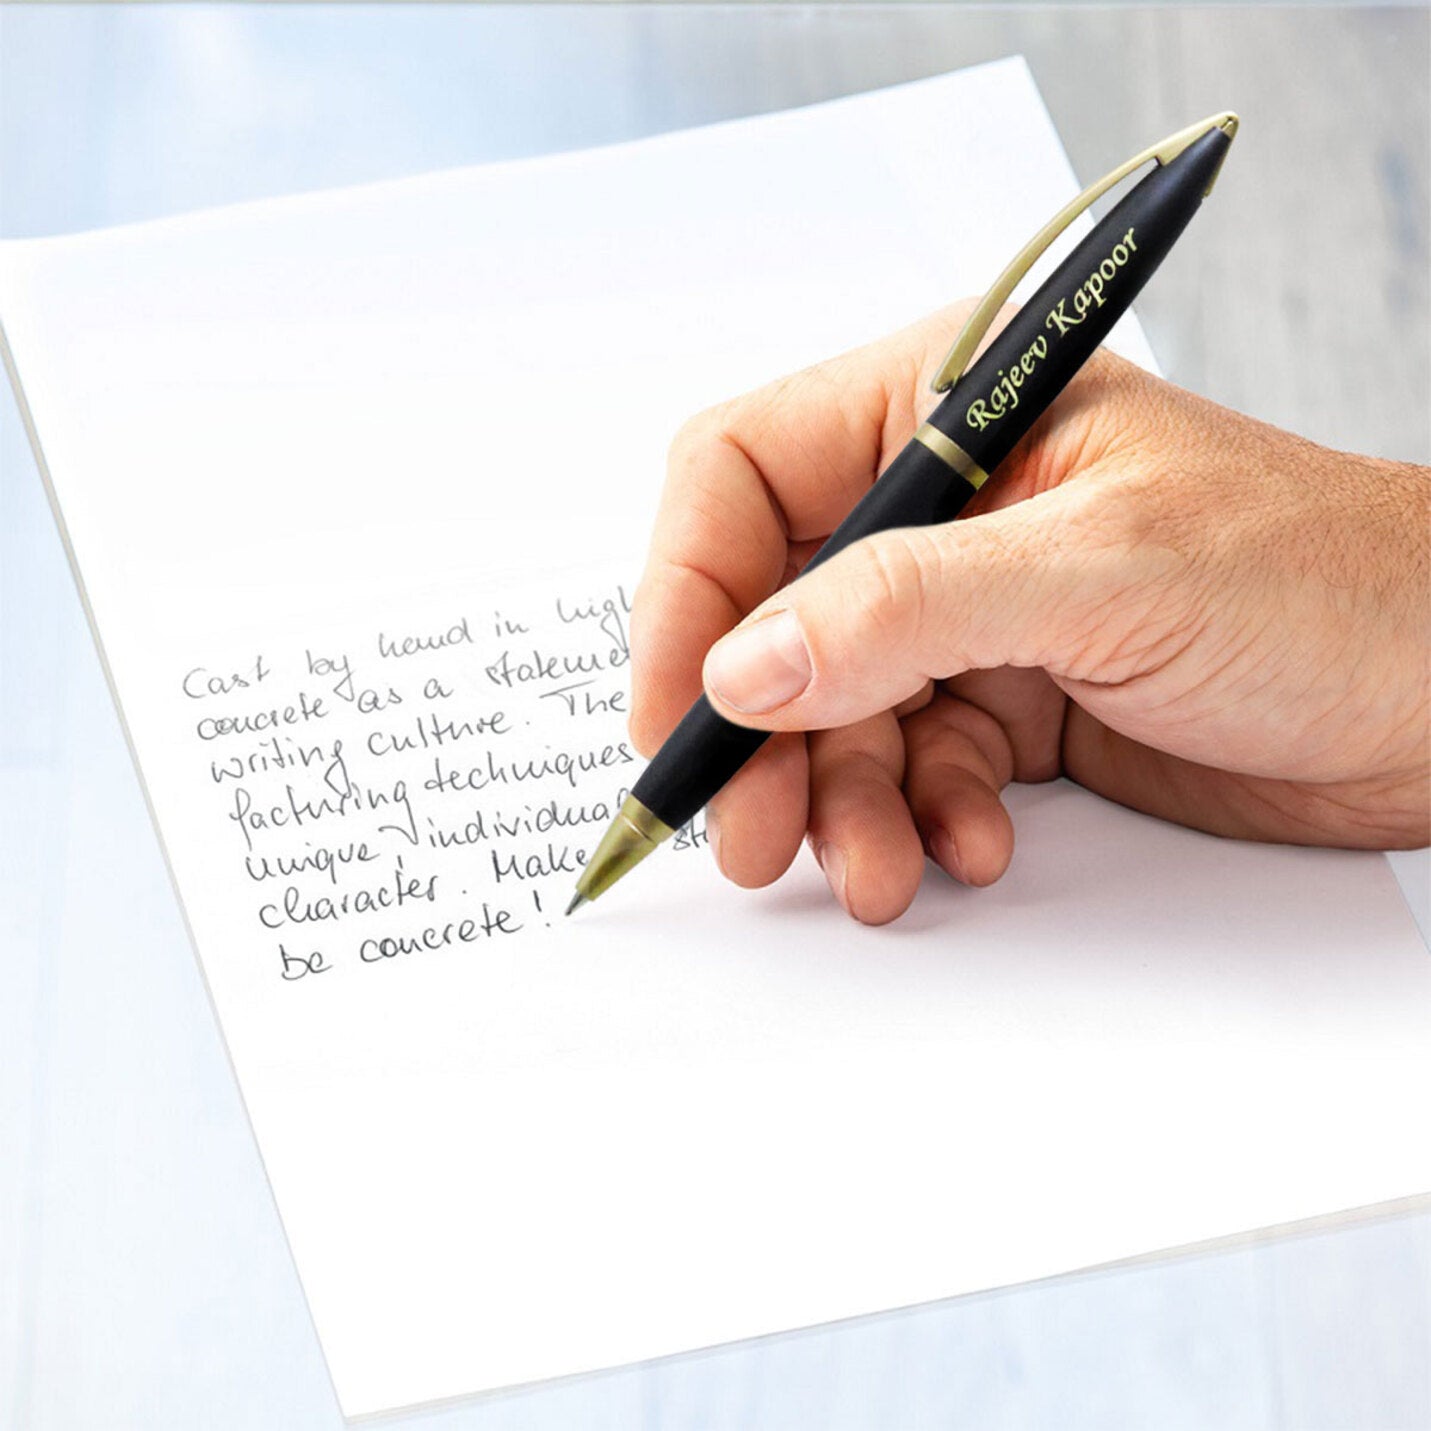 Rajeev Kapoor
Cast by hand in high
concrete as a stateme
writing culture. The
facturing techniques
unique, individual
character. Make st
be concrete!